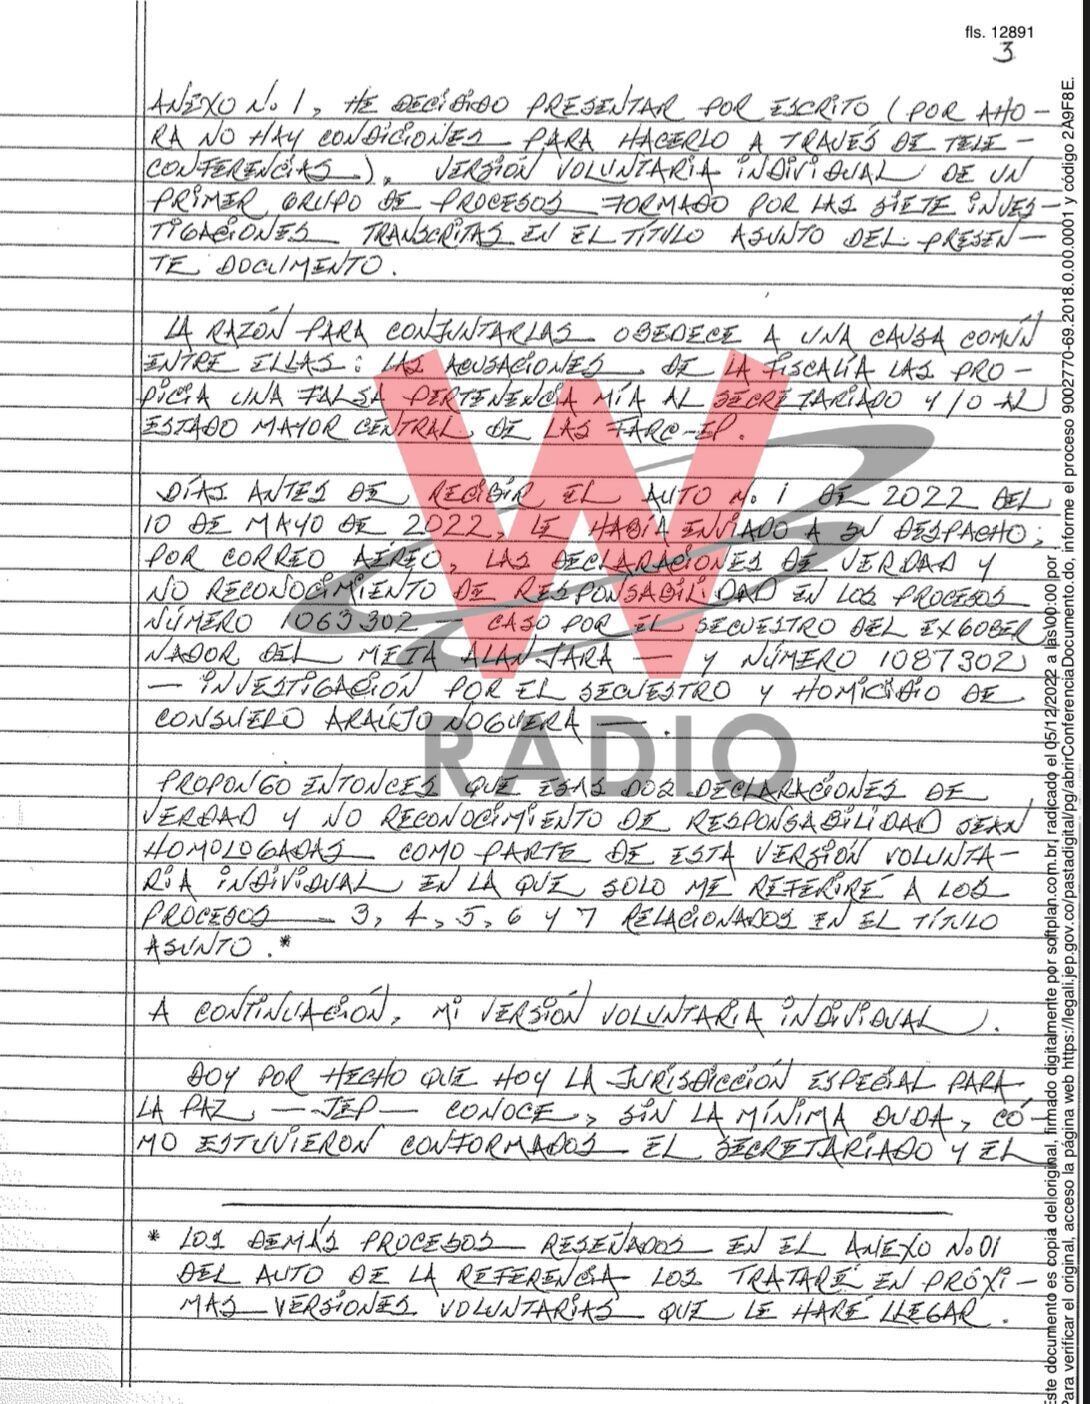 fls. 12891
3
ANEXO No. 1, HE DECIDIDO PRESENTAR POR ESCRITO (POR AHO-
RA NO HAY CONDICIONES PARA HACERLO A TRAVÉS DE TELE-
CONFERENCIAS), VERSIÓN VOLUNTARIA INDIVIDUAL DE UN
PRIMER GRUPO DE PROCESOS FORMADO POR LAS SIETE INVES-
TIGACIONES TRANSCRITAS EN EL TÍTULO ASUNTO DEL PRESEN-
TE DOCUMENTO.
LA RAZÓN PARA CONJUNTARLAS OBEDECE A UNA CAUSA COMÚN
ENTRE ELLAS: LAS ACUSACIONES DE LA FISCALÍA LAS PRO-
PICIA UNA FALSA PERTENENCIA MÍA AL SECRETARIADO Y/O AL
ESTADO MAYOR CENTRAL DE LAS FARC-EP.
DÍAS ANTES DE RECIBIR EL AUTO No. 1 DE 2022 DEL
10 DE MAYO DE 2022, LE HABÍA ENVIADO A SU DESPACHO,
POR CORREO AÉREO, LAS DECLARACIONES DE VERDAD Y
NO RECONOCIMIENTO DE RESPONSABILIDAD EN LOS PROCESOS
NÚMERO 1063302 — CASO POR EL SECUESTRO DEL EXGOBER
NADOR DEL META ALAN JARA — Y NÚMERO 1087302
— INVESTIGACIÓN POR EL SECUESTRO Y HOMICIDIO DE
CONSUELO ARAÚJO NOGUERA —.
PROPONGO ENTONCES QUE ESAS DOS DECLARACIONES DE
VERDAD Y NO RECONOCIMIENTO DE RESPONSABILIDAD SEAN
HOMOLOGADAS COMO PARTE DE ESTA VERSIÓN VOLUNTA-
RIA INDIVIDUAL EN LA QUE SOLO ME REFERIRÉ A LOS
PROCESOS 3, 4, 5, 6 Y 7 RELACIONADOS EN EL TÍTULO
ASUNTO.*
A CONTINUACIÓN, MI VERSIÓN VOLUNTARIA INDIVIDUAL.
DOY POR HECHO QUE HOY LA JURISDICCIÓN ESPECIAL PARA
LA PAZ, —JEP— CONOCE, SIN LA MÍNIMA DUDA, CÓ-
MO ESTUVIERON CONFORMADOS EL SECRETARIADO Y EL
* LOS DEMÁS PROCESOS RESEÑADOS EN EL ANEXO No. 01
DEL AUTO DE LA REFERENCIA LOS TRATARÉ EN PRÓXI-
MAS VERSIONES VOLUNTARIAS QUE LE HARÉ LLEGAR.
W
RADIO
Este documento es copia del original, firmado digitalmente por softplan.com.br, radicado el 05/12/2022 a las\00:00 por .
Para verificar el original, acceso la página web https://legali.jep.gov.co/pastadigital/pg/abrirConferenciaDocumento.do, informe el proceso 9002770-69.2018.0.00.0001 y código 2A9F8E.